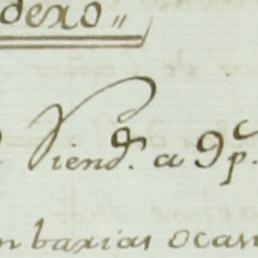 dexo,,
Siendo. a 9 p.c
n barias ocasi